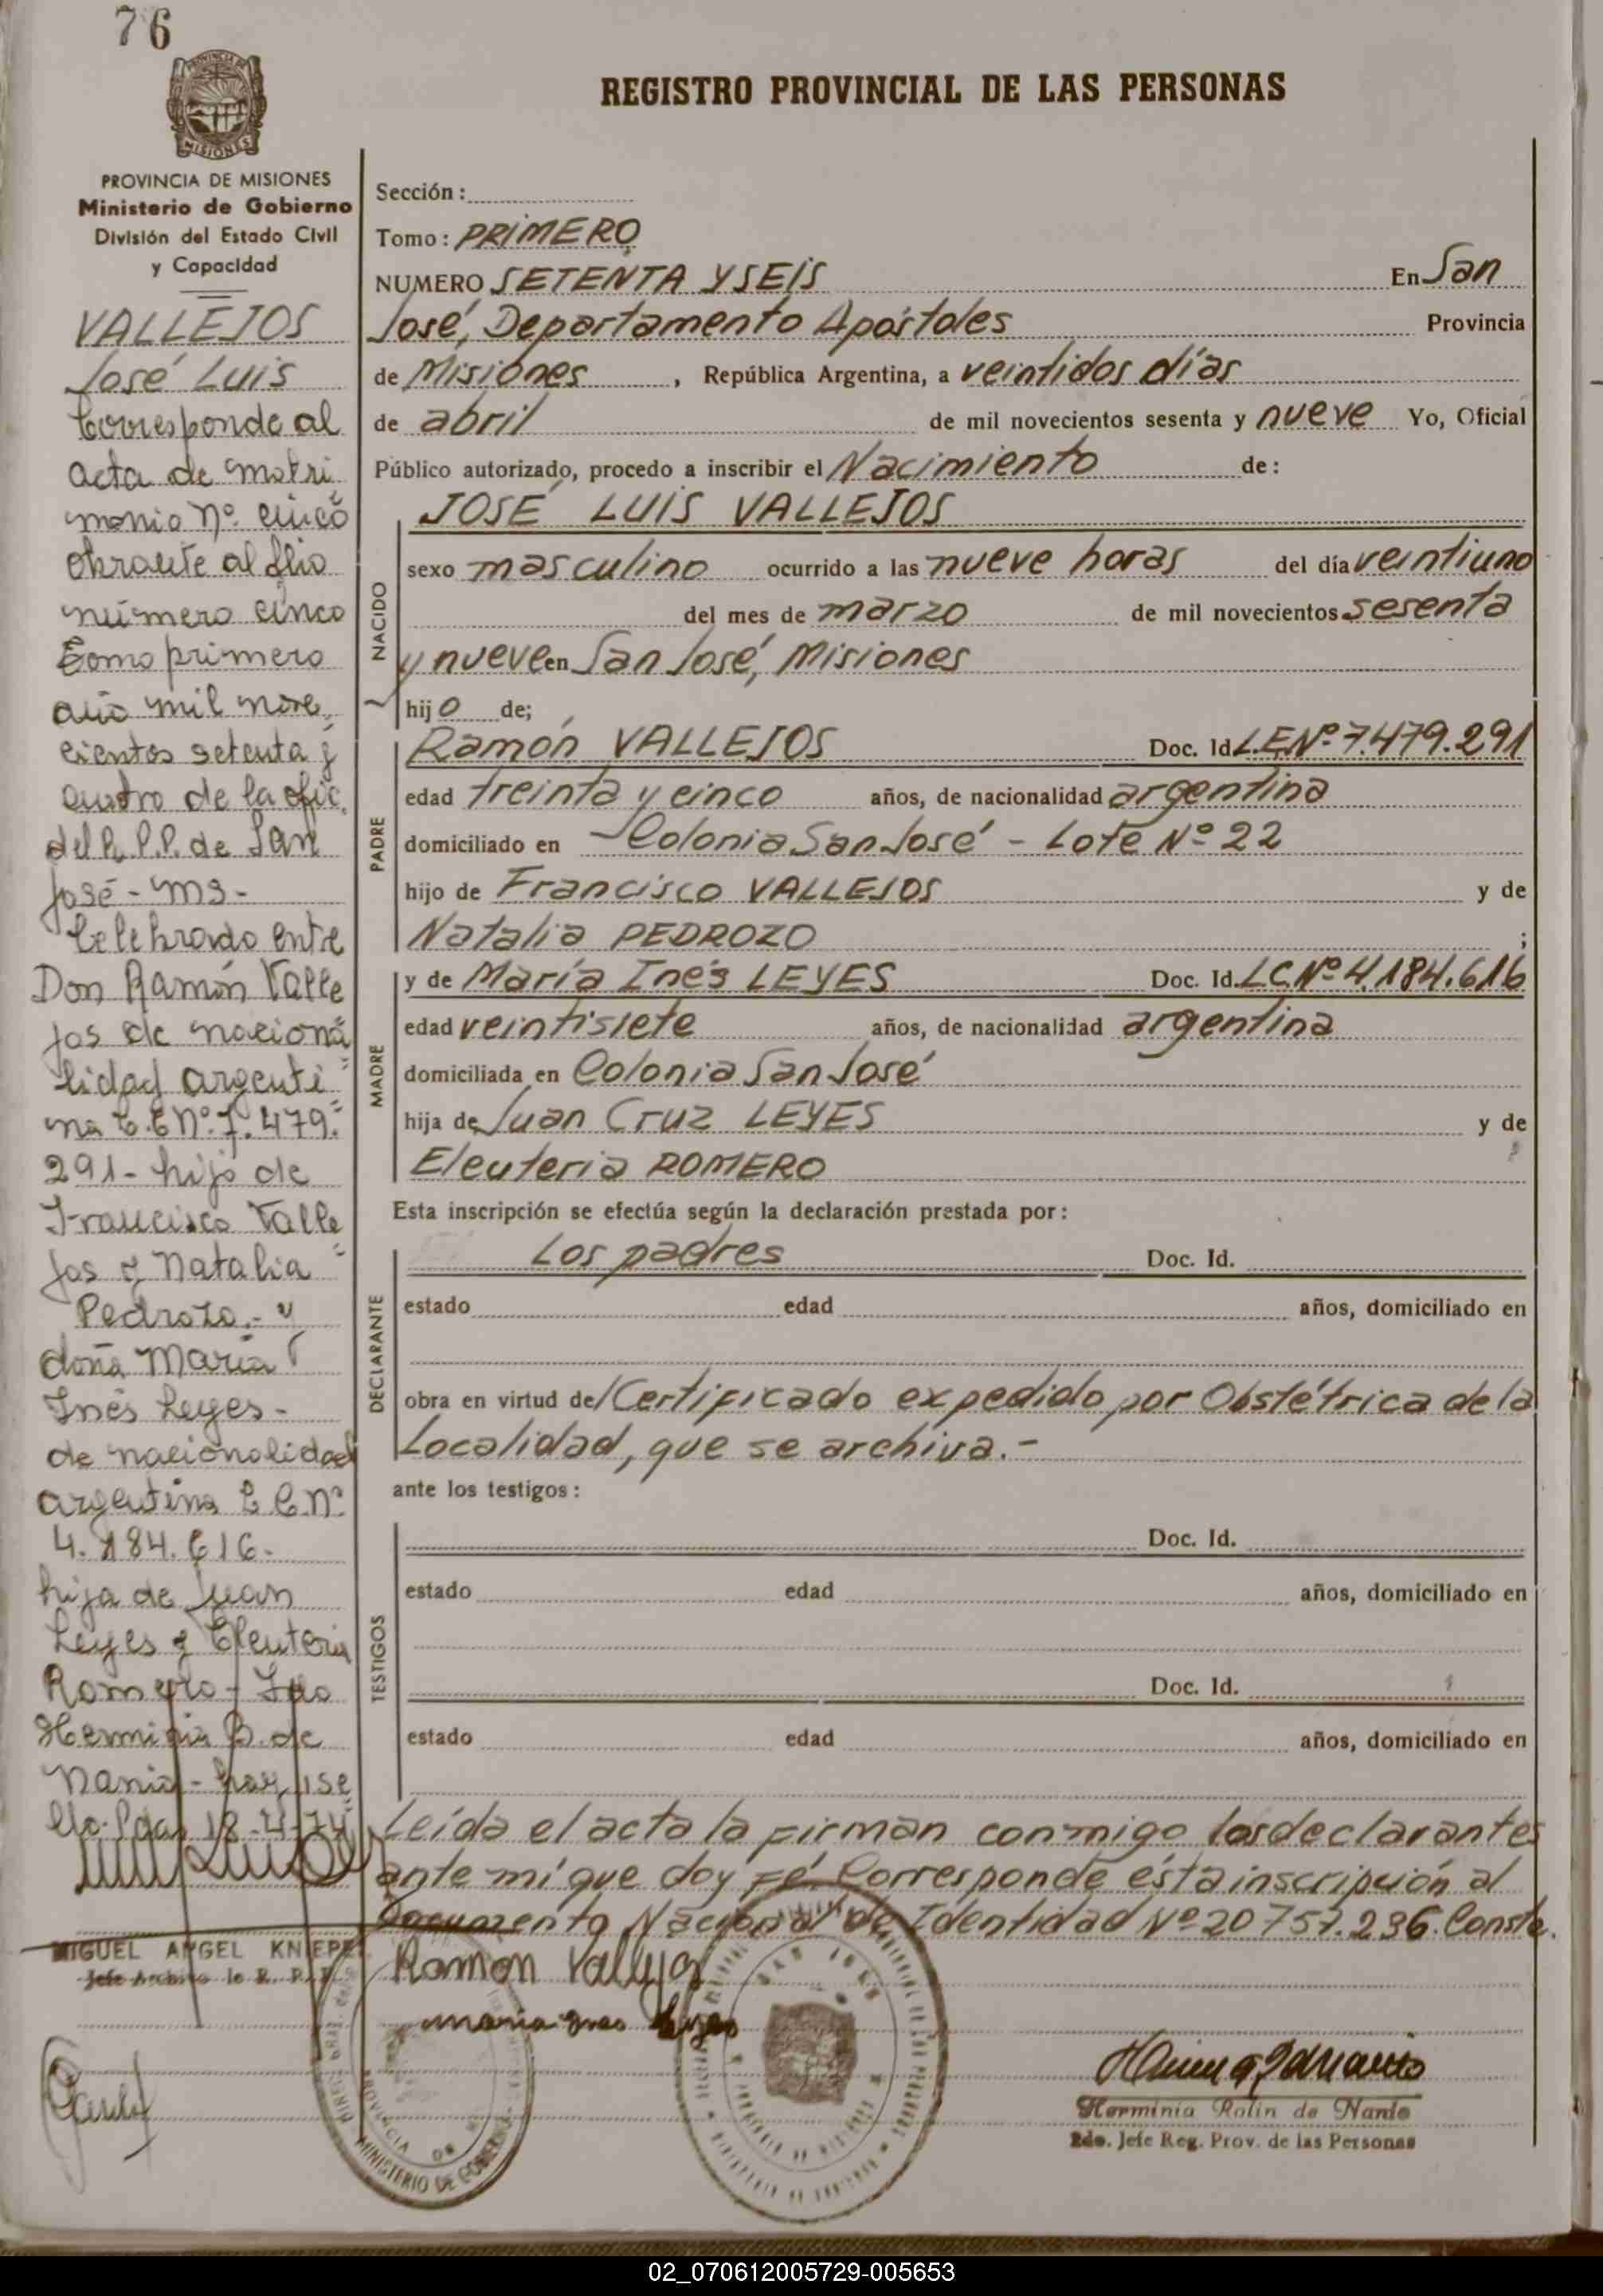 76
REGISTRO PROVINCIAL DE LAS PERSONAS
PROVINCIA DE MISIONES
Ministerio de Gobierno
División del Estado Civil
y Capacidad
VALLEJOS
José Luis
Corresponde al
acta de matri
monio Nº cinco
obrante al flio
número cinco
Tomo primero
año mil nove
cientos setenta y
cuatro de la ofic.
del R.P.P. de San
José - Ms -
Celebrado entre
Don Ramón Valle
jos de naciona
lidad argenti
na L.E Nº 7.479.
291 - hijo de
Francisco Valle
jos y Natalia
Pedrozo.- y
doña María
Inés Leyes -
de nacionalidad
argentina L.C.Nº
4.184.616-
hija de Juan
Leyes y Eleuteria
Romero - Fdo
Herminia B. de
Nanio - hay 1 se
llo. Pdas 18-4-74
MIGUEL ANGEL KNIEPE
Jefe Archivo de R. P. P.
Sección:
Tomo: PRIMERO
NUMERO SETENTA Y SEIS En San
José, Departamento Apóstoles Provincia
de Misiones, República Argentina, a veintidos días
de abril de mil novecientos sesenta y nueve Yo, Oficial
Público autorizado, procedo a inscribir el Nacimiento de:
NACIDO
JOSÉ LUIS VALLEJOS
sexo masculino ocurrido a las nueve horas del día veintiuno
del mes de marzo de mil novecientos sesenta
y nueve en San José, Misiones
hijo de;
PADRE
Ramón VALLEJOS Doc. Id. L.E.Nº 7.479.291
edad treinta y cinco años, de nacionalidad argentina
domiciliado en Colonia San José - Lote Nº 22
hijo de Francisco VALLEJOS y de
Natalia PEDROZO ;
MADRE
y de María Inés LEYES Doc. Id. L.C.Nº 4.184.616
edad veintisiete años, de nacionalidad argentina
domiciliada en Colonia San José
hija de Juan Cruz LEYES y de
Eleuteria ROMERO
Esta inscripción se efectúa según la declaración prestada por:
DECLARANTE
Los padres Doc. Id.
estado edad años, domiciliado en
obra en virtud de/Certificado expedido por Obstétrica de la
Localidad, que se archiva.-
ante los testigos:
TESTIGOS
Doc. Id.
estado edad años, domiciliado en
Doc. Id.
estado edad años, domiciliado en
Leída el acta la firman conmigo los declarantes
ante mí que doy fé. Corresponde ésta inscripción al
Documento Nacional de Identidad Nº 20757.236. Conste.
Ramon Vallejos
maria ines Leyes
PROVINCIA DE
MINISTERIO DE GOBIERNO
SAN JOSE
Herminia Rolin de Nanio
2do. Jefe Reg. Prov. de las Personas
02_070612005729-005653